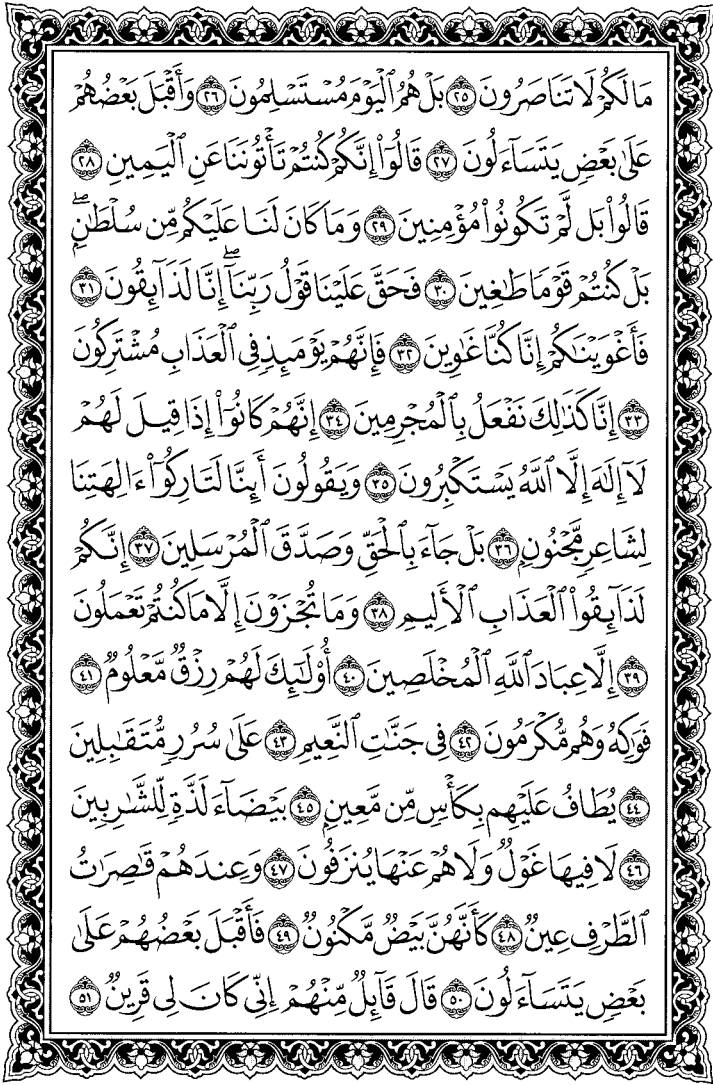 مَا لَكُمْ لَا تَنَاصَرُونَ ٢٥ بَلْ هُمُ ٱلْيَوْمَ مُسْتَسْلِمُونَ ٢٦ وَأَقْبَلَ بَعْضُهُمْ
عَلَىٰ بَعْضٍ يَتَسَآءَلُونَ ٢٧ قَالُوٓا۟ إِنَّكُمْ كُنتُمْ تَأْتُونَنَا عَنِ ٱلْيَمِينِ ٢٨
قَالُوا۟ بَل لَّمْ تَكُونُوا۟ مُؤْمِنِينَ ٢٩ وَمَا كَانَ لَنَا عَلَيْكُم مِّن سُلْطَٰنٍۭ ۖ
بَلْ كُنتُمْ قَوْمًا طَٰغِينَ ٣٠ فَحَقَّ عَلَيْنَا قَوْلُ رَبِّنَآ ۖ إِنَّا لَذَآئِقُونَ ٣١
فَأَغْوَيْنَٰكُمْ إِنَّا كُنَّا غَٰوِينَ ٣٢ فَإِنَّهُمْ يَوْمَئِذٍ فِى ٱلْعَذَابِ مُشْتَرِكُونَ
٣٣ إِنَّا كَذَٰلِكَ نَفْعَلُ بِٱلْمُجْرِمِينَ ٣٤ إِنَّهُمْ كَانُوٓا۟ إِذَا قِيلَ لَهُمْ
لَآ إِلَٰهَ إِلَّا ٱللَّهُ يَسْتَكْبِرُونَ ٣٥ وَيَقُولُونَ أَئِنَّا لَتَارِكُوٓا۟ ءَالِهَتِنَا
لِشَاعِرٍ مَّجْنُونٍۭ ٣٦ بَلْ جَآءَ بِٱلْحَقِّ وَصَدَّقَ ٱلْمُرْسَلِينَ ٣٧ إِنَّكُمْ
لَذَآئِقُوا۟ ٱلْعَذَابِ ٱلْأَلِيمِ ٣٨ وَمَا تُجْزَوْنَ إِلَّا مَا كُنتُمْ تَعْمَلُونَ
٣٩ إِلَّا عِبَادَ ٱللَّهِ ٱلْمُخْلَصِينَ ٤٠ أُو۟لَٰٓئِكَ لَهُمْ رِزْقٌ مَّعْلُومٌ ٤١
فَوَٰكِهُ وَهُم مُّكْرَمُونَ ٤٢ فِى جَنَّٰتِ ٱلنَّعِيمِ ٤٣ عَلَىٰ سُرُرٍ مُّتَقَٰبِلِينَ
٤٤ يُطَافُ عَلَيْهِم بِكَأْسٍ مِّن مَّعِينٍۭ ٤٥ بَيْضَآءَ لَذَّةٍ لِّلشَّٰرِبِينَ
٤٦ لَا فِيهَا غَوْلٌ وَلَا هُمْ عَنْهَا يُنزَفُونَ ٤٧ وَعِندَهُمْ قَٰصِرَٰتُ
ٱلطَّرْفِ عِينٌ ٤٨ كَأَنَّهُنَّ بَيْضٌ مَّكْنُونٌ ٤٩ فَأَقْبَلَ بَعْضُهُمْ عَلَىٰ
بَعْضٍ يَتَسَآءَلُونَ ٥٠ قَالَ قَآئِلٌ مِّنْهُمْ إِنِّى كَانَ لِى قَرِينٌ ٥١